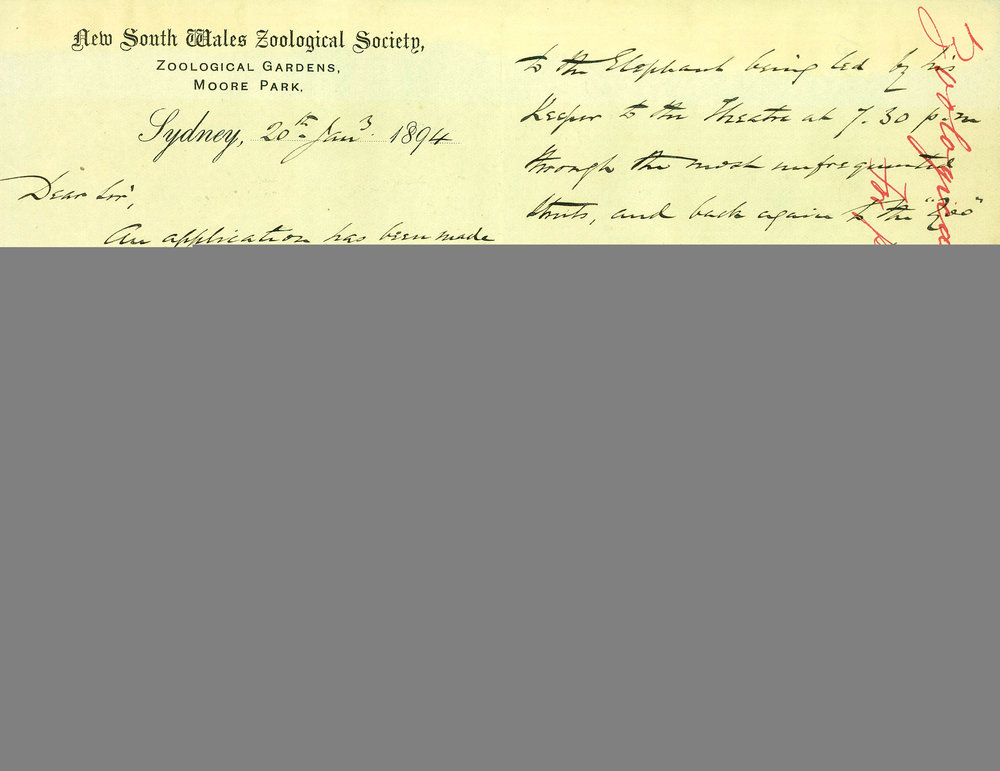 New South Wales Zoological Society,
ZOOLOGICAL GARDENS,
MOORE PARK.
Sydney, 20th Jany 1894
Dear Sir,
An application has been made
to the Elephant being led by his
Keeper to the Theatre at 7.30 p.m
through the most unfrequented
streets, and back again to the "Zoo"
Zoological